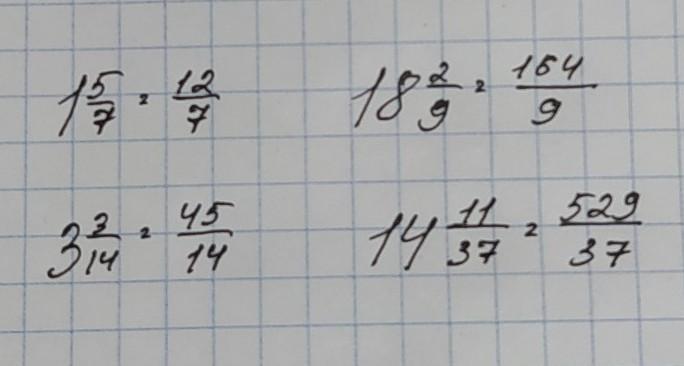 1 5/7 = 12/7
18 2/9 = 164/9
3 3/14 = 45/14
14 11/37 = 529/37